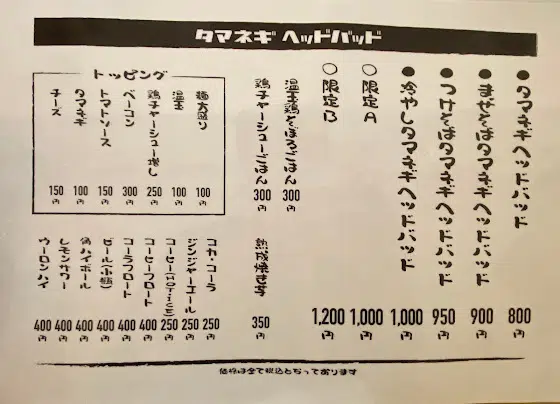 タマネギ ヘッドバッド
●タマネギヘッドバッド 800円
●まぜそばタマネギヘッドバッド 900円
●つけそばタマネギヘッドバッド 950円
●冷やしタマネギヘッドバッド 1,000円
○限定A 1,000円
○限定B 1,200円
温玉鶏そぼろごはん 300円
鶏チャーシューごはん 300円
熟成焼き芋 350円
トッピング
麺大盛り 100円
温玉 100円
鶏チャーシュー増し 250円
ベーコン 300円
トマトソース 150円
タマネギ 100円
チーズ 150円
コカ・コーラ 250円
ジンジャーエール 250円
コーヒー(HOT・ICE) 250円
コーヒーフロート 400円
コーラフロート 400円
ビール(小瓶) 400円
角ハイボール 400円
レモンサワー 400円
ウーロンハイ 400円
価格は全て税込となっております